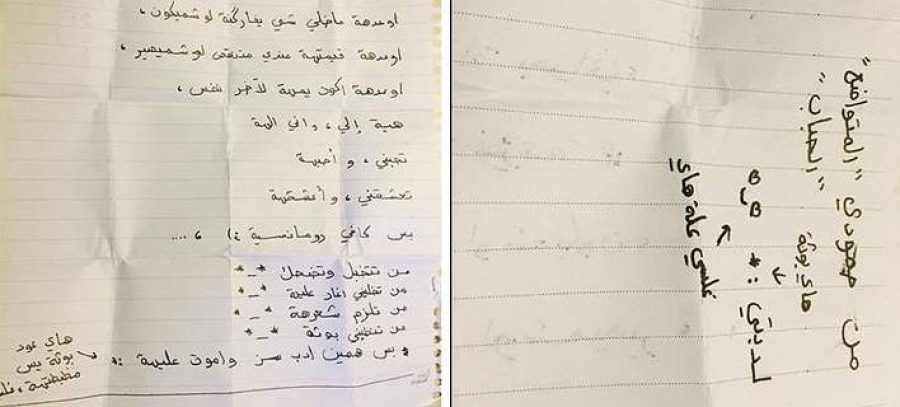 اوعدهة ماخلي شي يفاركنة لو شميكون ،
اوعدهة قيمتهة عندي متنقص لو شميصير ،
اوعدهة اكون يمهة لآخر نفس ،
هية إلي ، واني الهة
تحبني ، و أحبهة
تعشقني ، و أعشقهة
بس كافي رومانسية :) ، ....
من تتخبل وتضحك *_*
من تخليني اغار عليهة *_*
من تلزم شعرهة *_*
من تنطيني بوثة *_*
* بس همين ادب سز واموت عليهة :*
هاي عود
بوثة بس
من مهودي "المتواضع"
"الحباب"
هاي بوثة
لدبتي : *
غلسي علة هاي